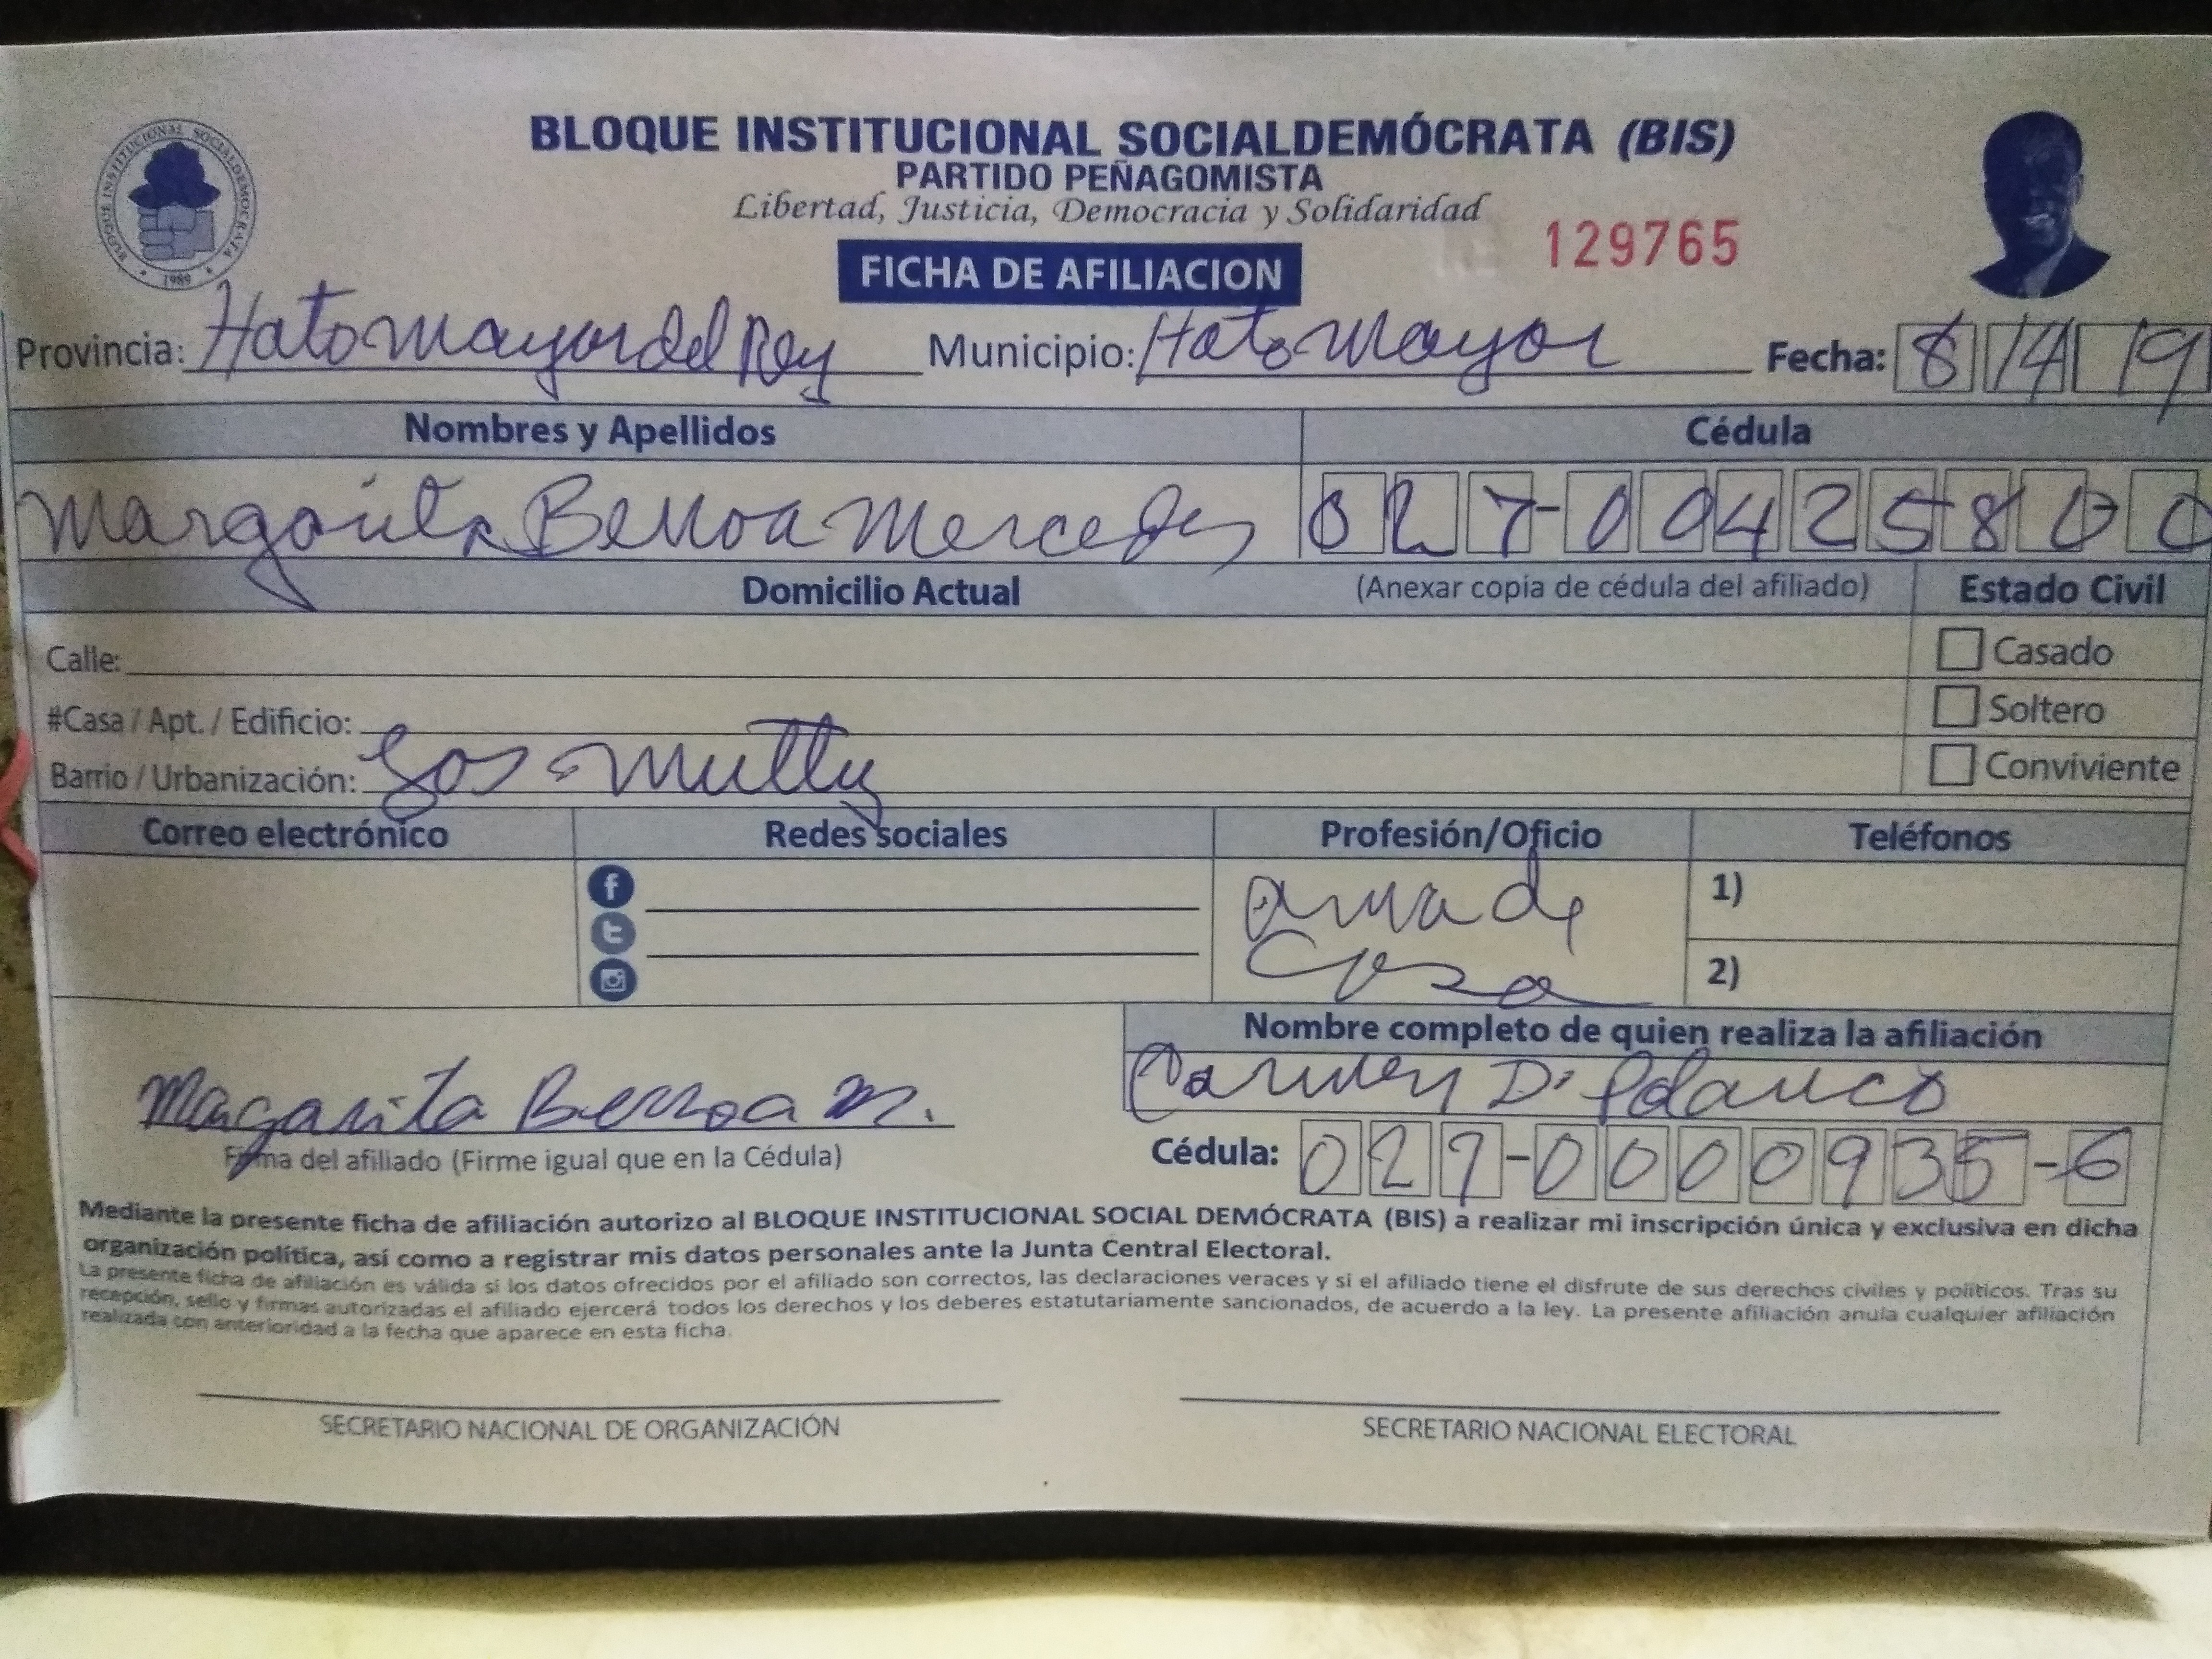 BLOQUE INSTITUCIONAL SOCIALDEMÓCRATA (BIS)
PARTIDO PEÑAGOMISTA
Libertad, Justicia, Democracia y Solidaridad
BLOQUE INSTITUCIONAL SOCIALDEMOCRATA
1989
129765
FICHA DE AFILIACION
Provincia: Hato Mayor del Rey Municipio: Hato Mayor Fecha: 8 14 19
Nombres y Apellidos Cédula
Margarita Berroa Mercedes 027-00425800
Domicilio Actual (Anexar copia de cédula del afiliado) Estado Civil
Calle: Casado
#Casa / Apt. / Edificio: Soltero
Barrio / Urbanización: Conviviente
Correo electrónico Redes sociales Profesión/Oficio Teléfonos
f ama de 1)
t casa 2)
Nombre completo de quien realiza la afiliación
Carmen D. Polanco
Margarita Berroa M.
Firma del afiliado (Firme igual que en la Cédula) Cédula: 027-0000935-6
Mediante la presente ficha de afiliación autorizo al BLOQUE INSTITUCIONAL SOCIAL DEMÓCRATA (BIS) a realizar mi inscripción única y exclusiva en dicha
organización política, así como a registrar mis datos personales ante la Junta Central Electoral.
La presente ficha de afiliación es válida si los datos ofrecidos por el afiliado son correctos, las declaraciones veraces y si el afiliado tiene el disfrute de sus derechos civiles y políticos. Tras su
recepción, sello y firmas autorizadas el afiliado ejercerá todos los derechos y los deberes estatutariamente sancionados, de acuerdo a la ley. La presente afiliación anula cualquier afiliación
realizada con anterioridad a la fecha que aparece en esta ficha.
SECRETARIO NACIONAL DE ORGANIZACIÓN SECRETARIO NACIONAL ELECTORAL